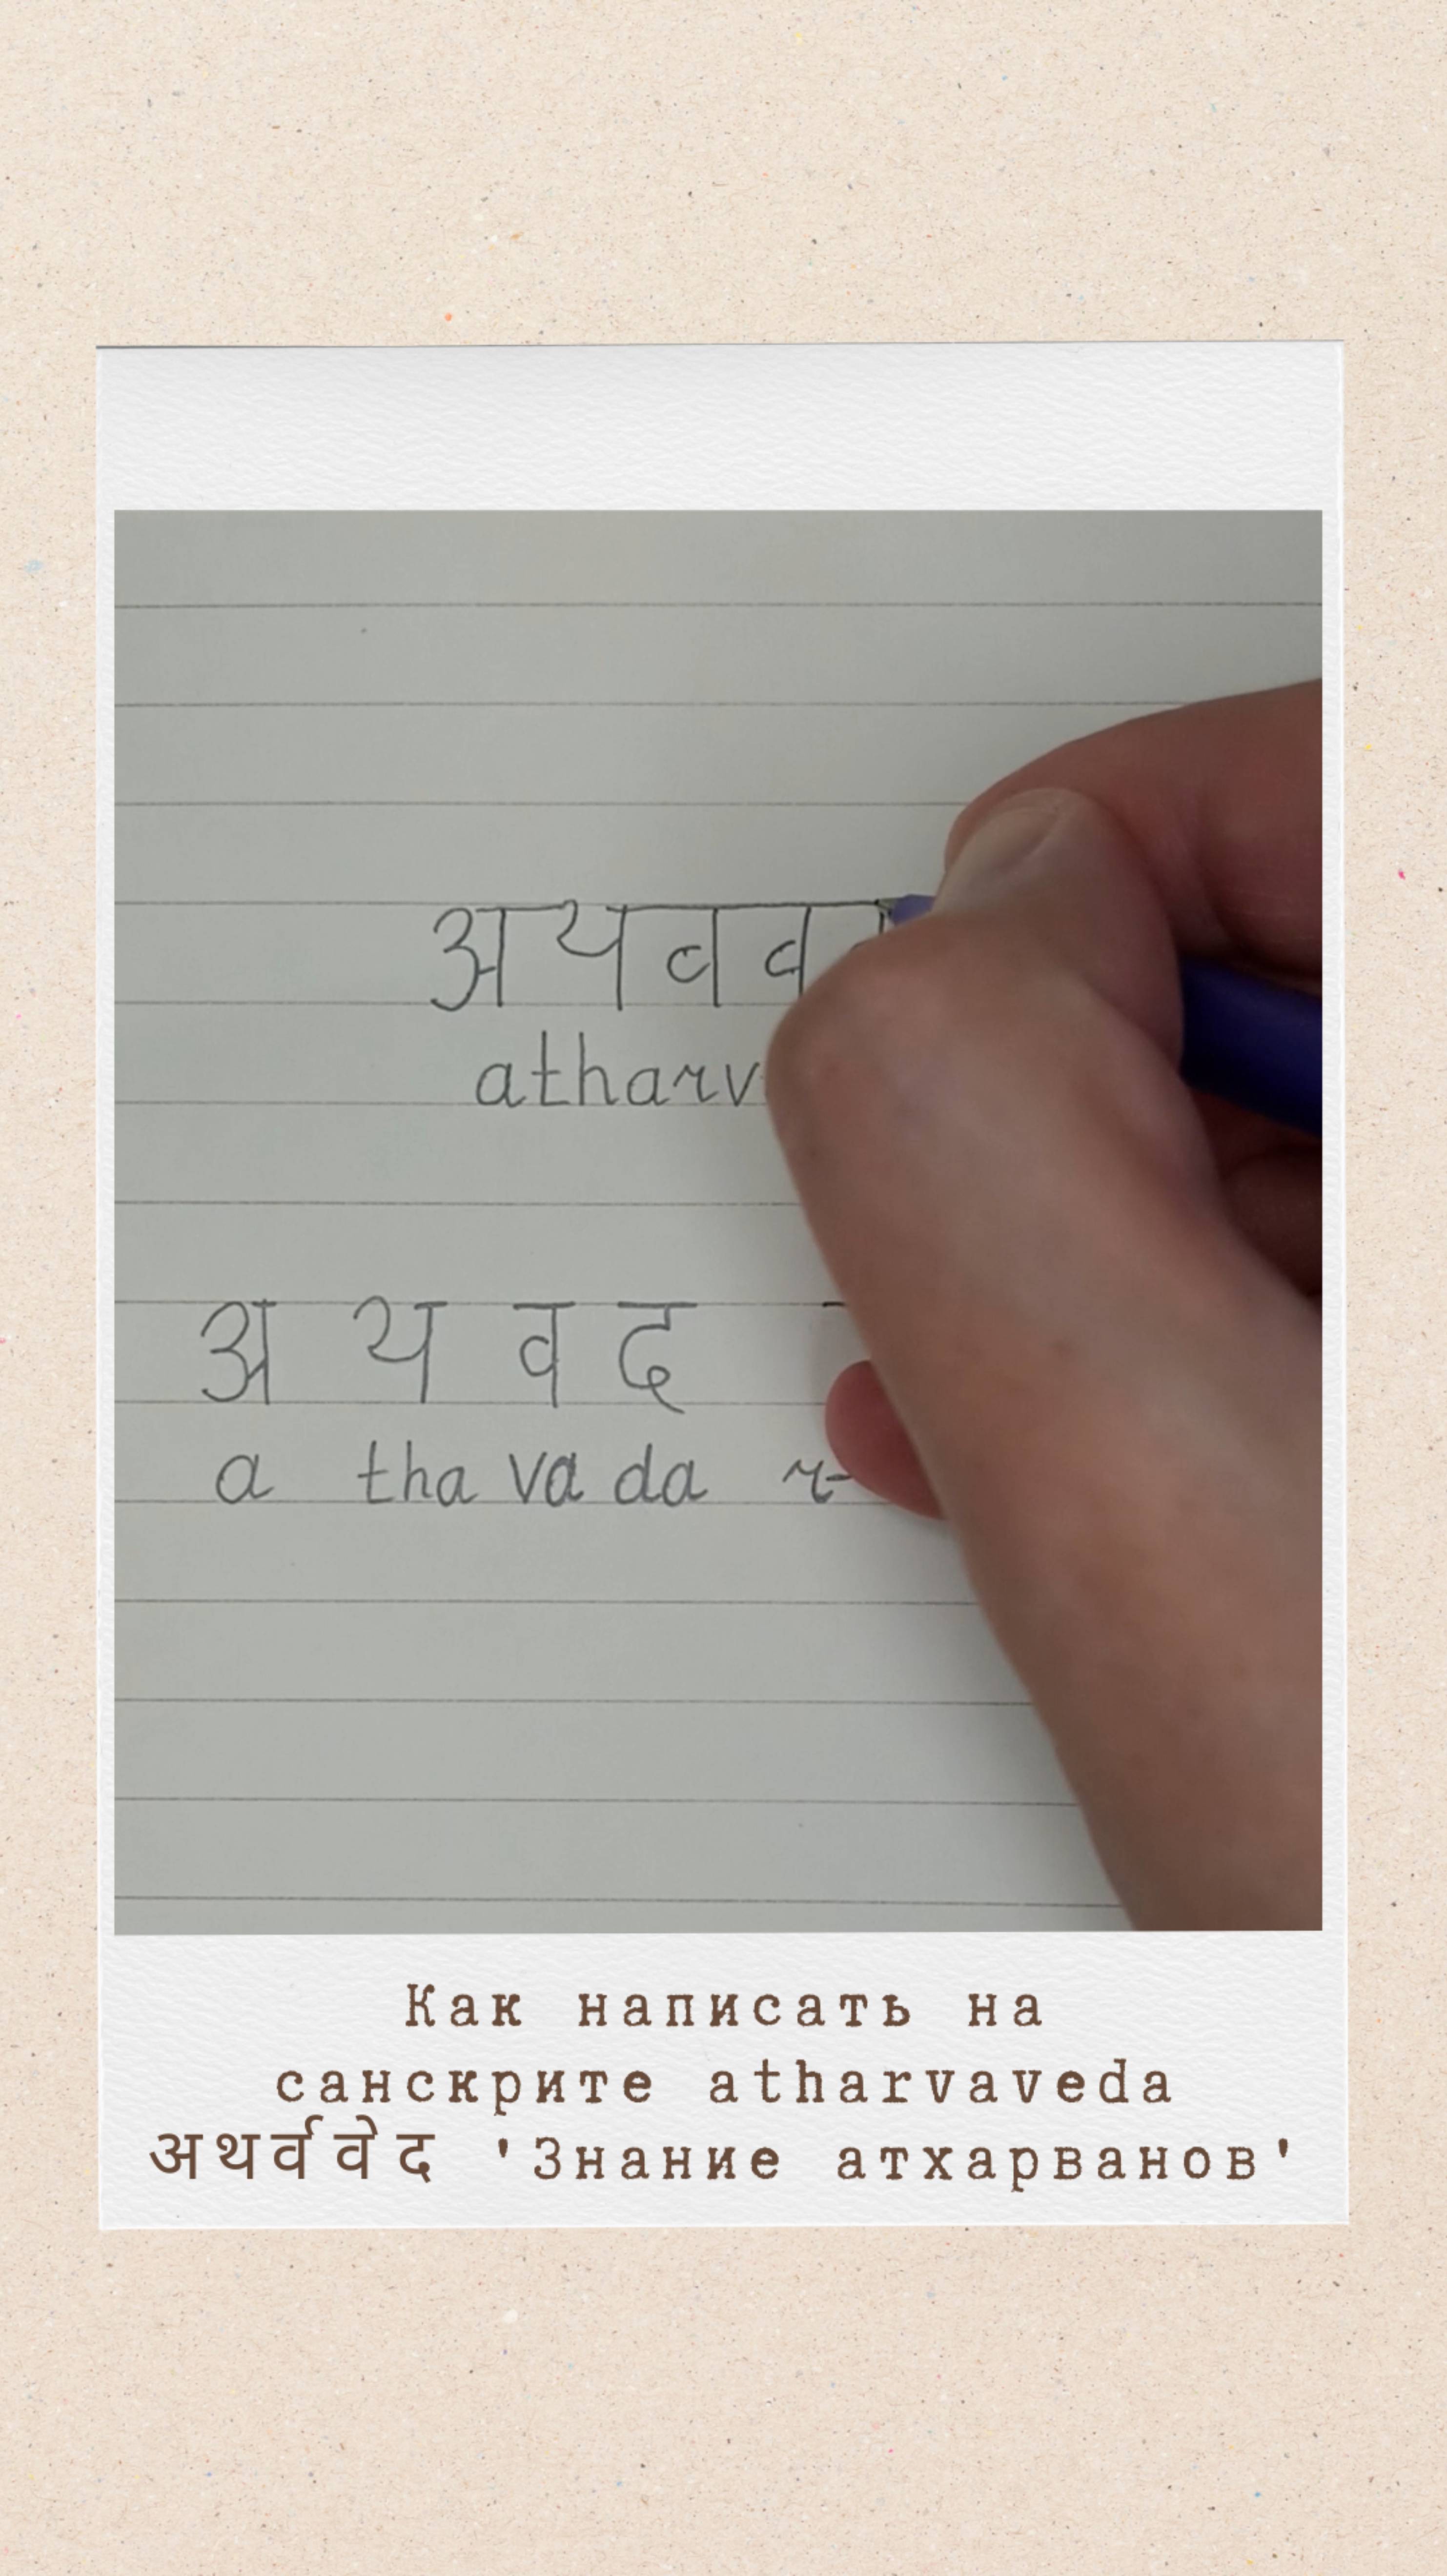 अथवव
atharv
अ थ व द
a tha va da r-
Как написать на
санскрите atharvaveda
अथर्ववेद 'Знание атхарванов'